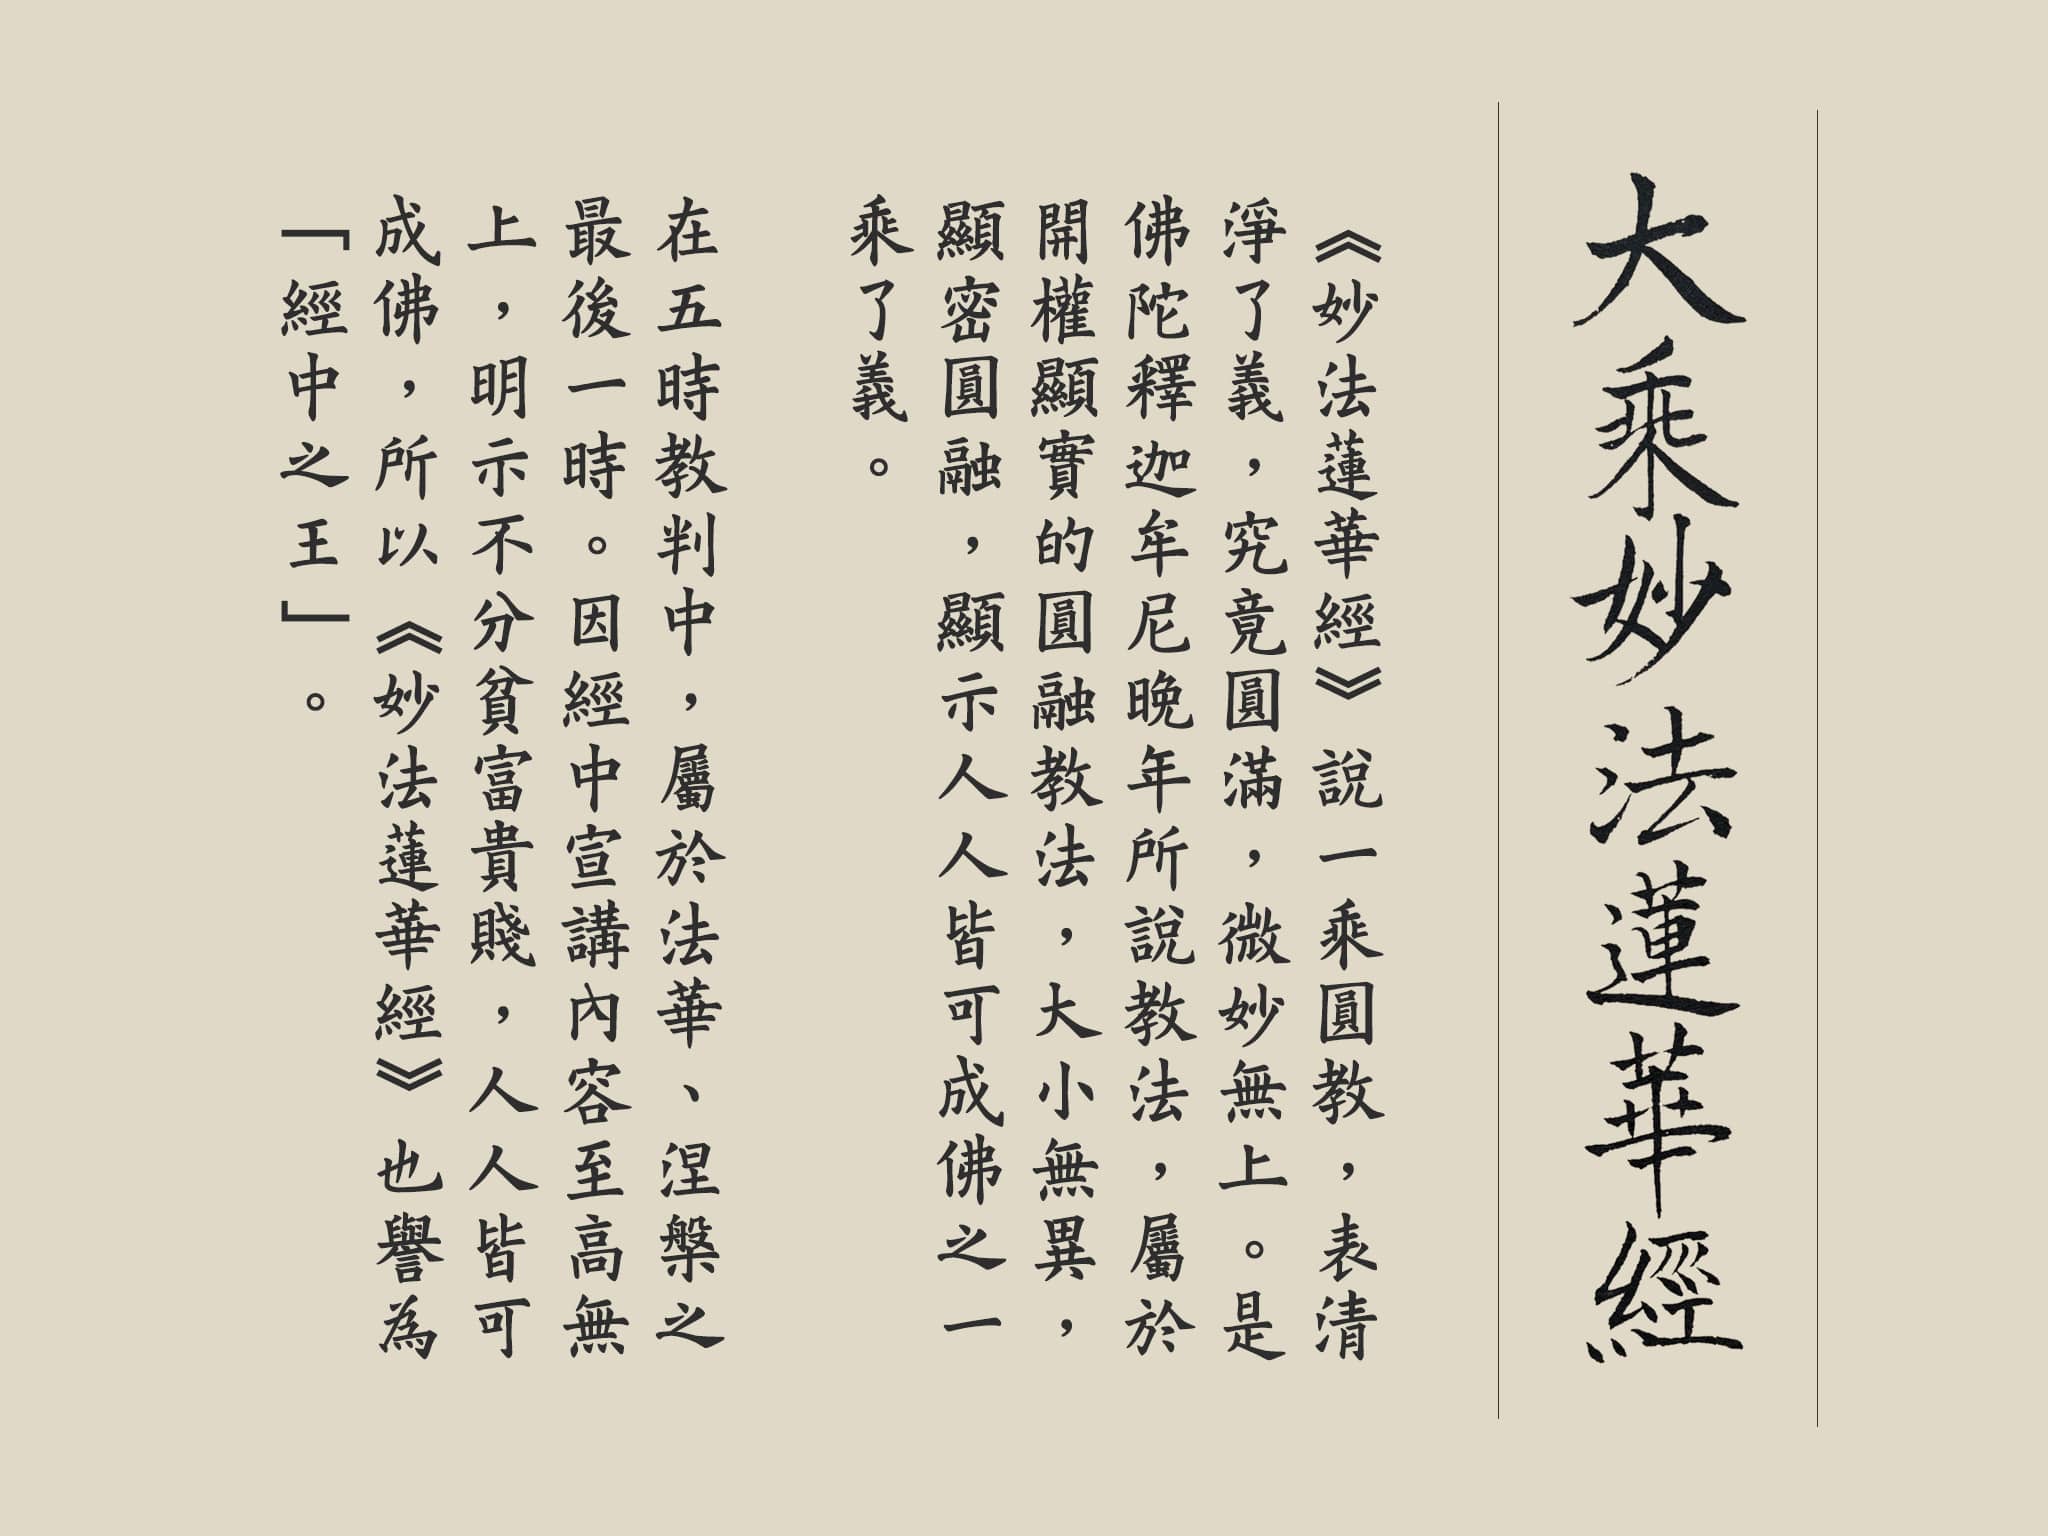 大乘妙法蓮華經
《妙法蓮華經》說一乘圓教，表清
淨了義，究竟圓滿，微妙無上。是
佛陀釋迦牟尼晚年所說教法，屬於
開權顯實的圓融教法，大小無異，
顯密圓融，顯示人人皆可成佛之一
乘了義。
在五時教判中，屬於法華、涅槃之
最後一時。因經中宣講內容至高無
上，明示不分貧富貴賤，人人皆可
成佛，所以《妙法蓮華經》也譽為
「經中之王」。